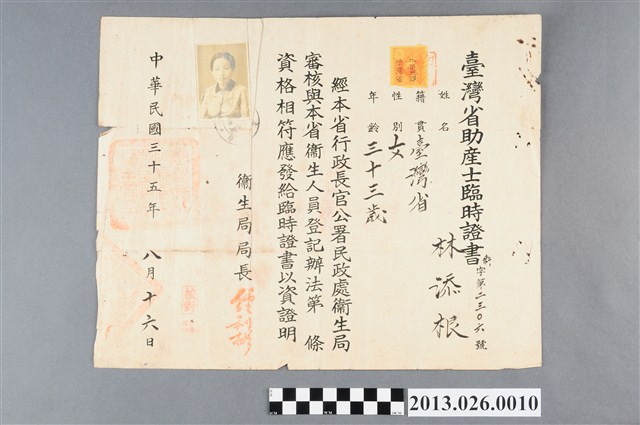 臺灣省助産士臨時證書
字第二三〇六號
姓名 林添根
籍貫 臺灣省
性別 女
年齡 三十三歲
經本省行政長官公署民政處衞生局
審核與本省衞生人員登記辦法第 條
資格相符應發給臨時證書以資證明
衞生局局長 經利彬
中華民國三十五年 八月十六日
2013.026.0010